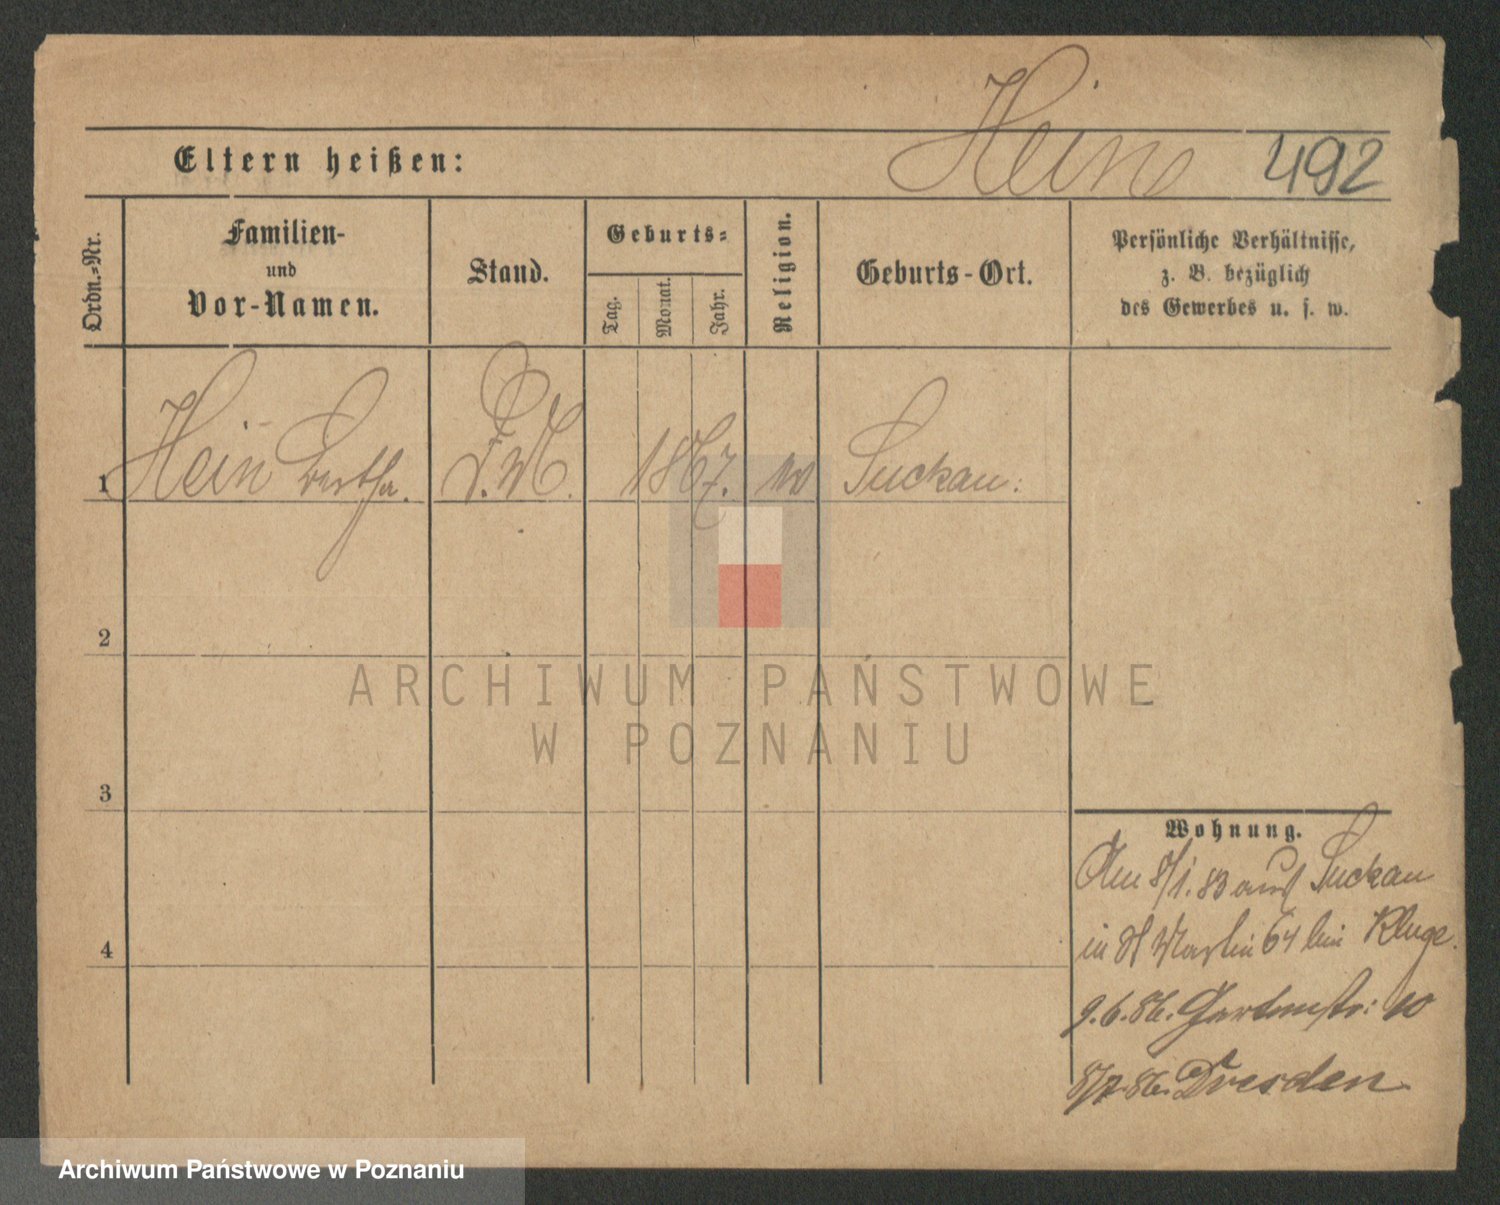 Hein 492
Eltern heißen:
Ordn.-Nr.
Familien-
und
Vor-Namen.
Stand.
Geburts-
Tag.
Monat.
Jahr.
Religion.
Geburts-Ort.
Persönliche Verhältnisse,
z. B. bezüglich
des Gewerbes u. s. w.
1 Hein Bertha. D.M. 1867. Suckau.
2
3
4
Wohnung.
Am 8/1. 83 aus Suckau
in St Martin 64 bei Kluge.
9.6.86. Gartenstr: 10
8/7.86. Dresden
ARCHIWUM PAŃSTWOWE
W POZNANIU
Archiwum Państwowe w Poznaniu